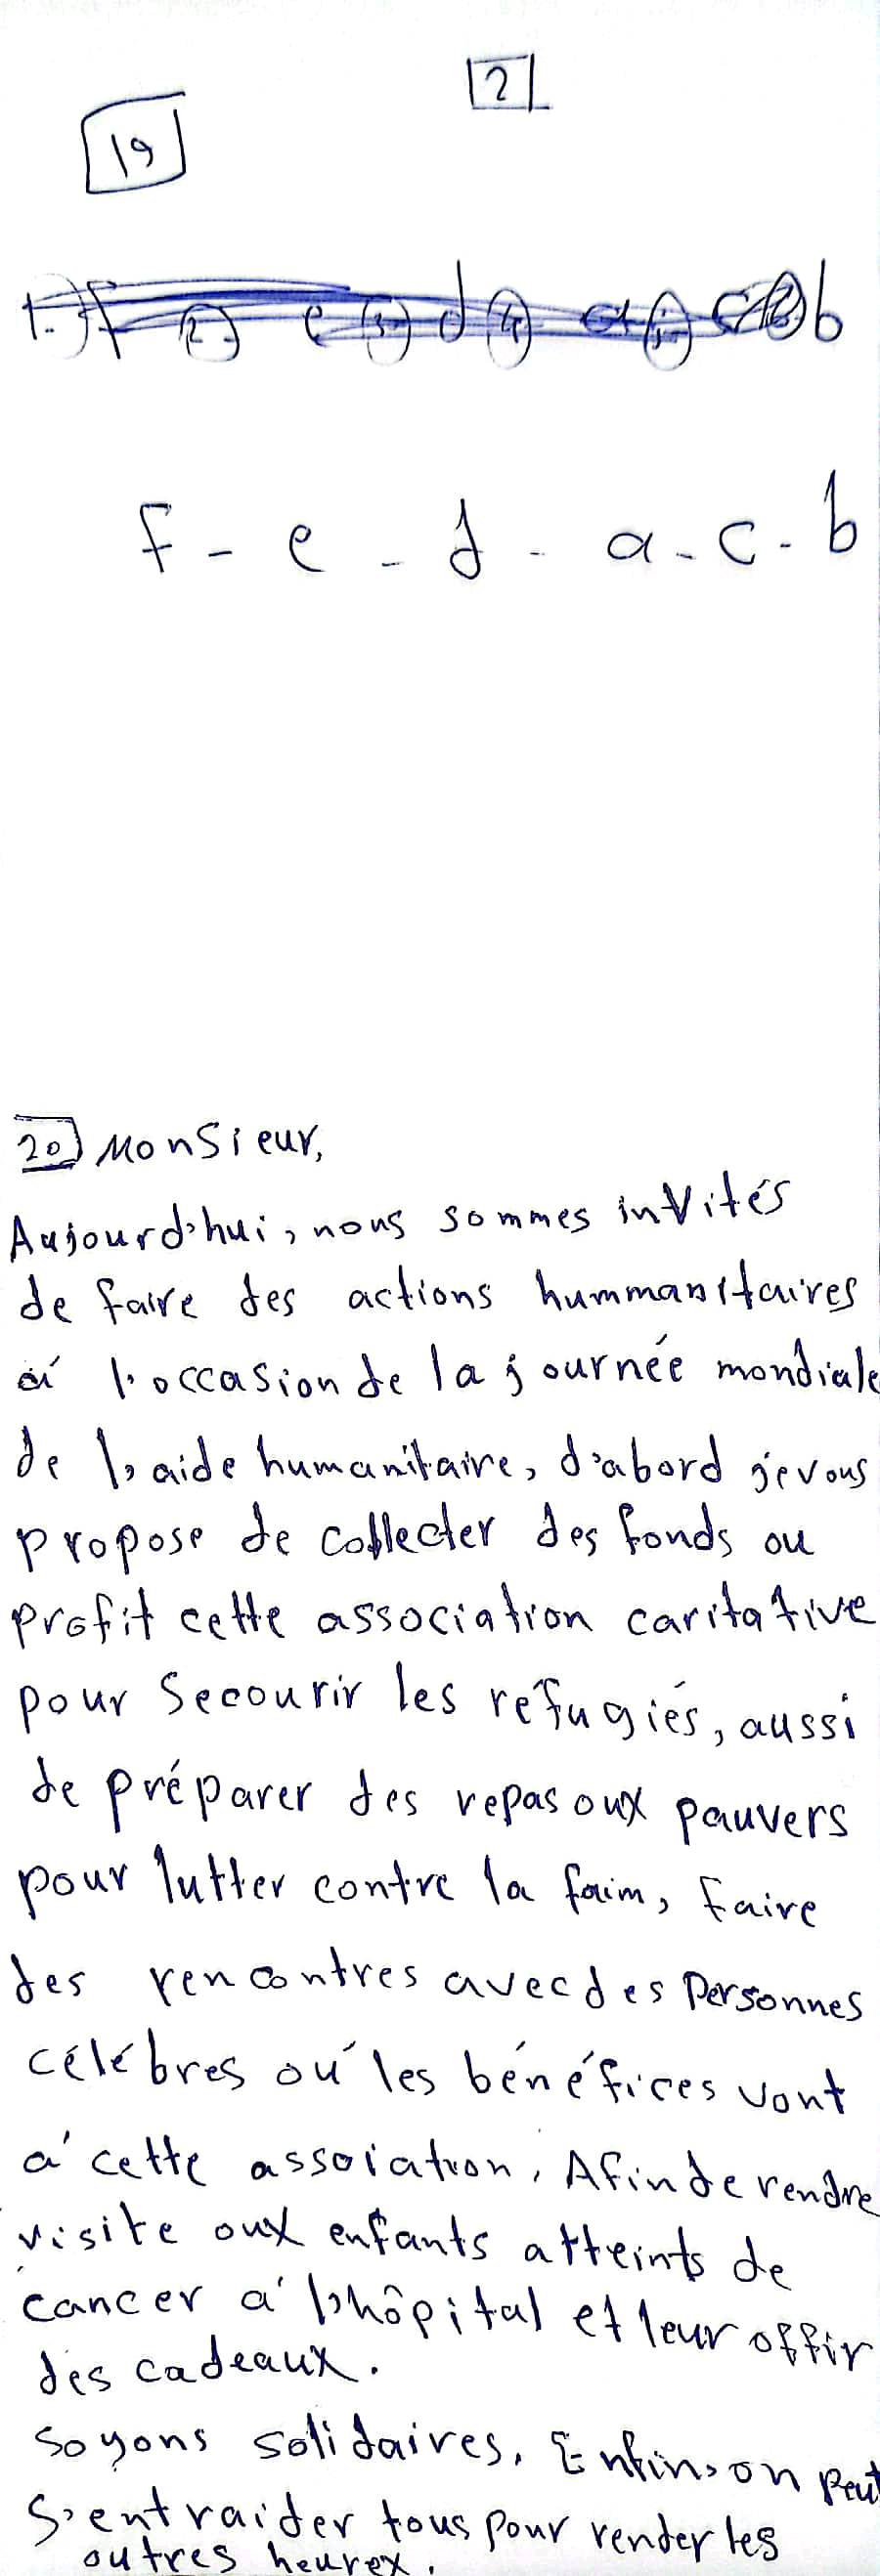 2
19
1. f 2. e 3. d 4. a 5. c b
f - e - d - a - c - b
20 Monsieur,
Aujourd'hui, nous sommes invités
de faire des actions hummanitaires
à l'occasion de la journée mondiale
de l'aide humanitaire, d'abord je vous
propose de collecter des fonds ou
profit cette association caritative
pour secourir les réfugiés, aussi
de préparer des repas oux pauvers
pour lutter contre la faim, faire
des rencontres avec des personnes
célébres où les bénéfices vont
à cette assoiation, Afin de rendre
visite oux enfants atteints de
cancer à l'hôpital et leur offir
des cadeaux.
soyons solidaires. Enfin, on peut
s'entraider tous pour render les
outres heurex.